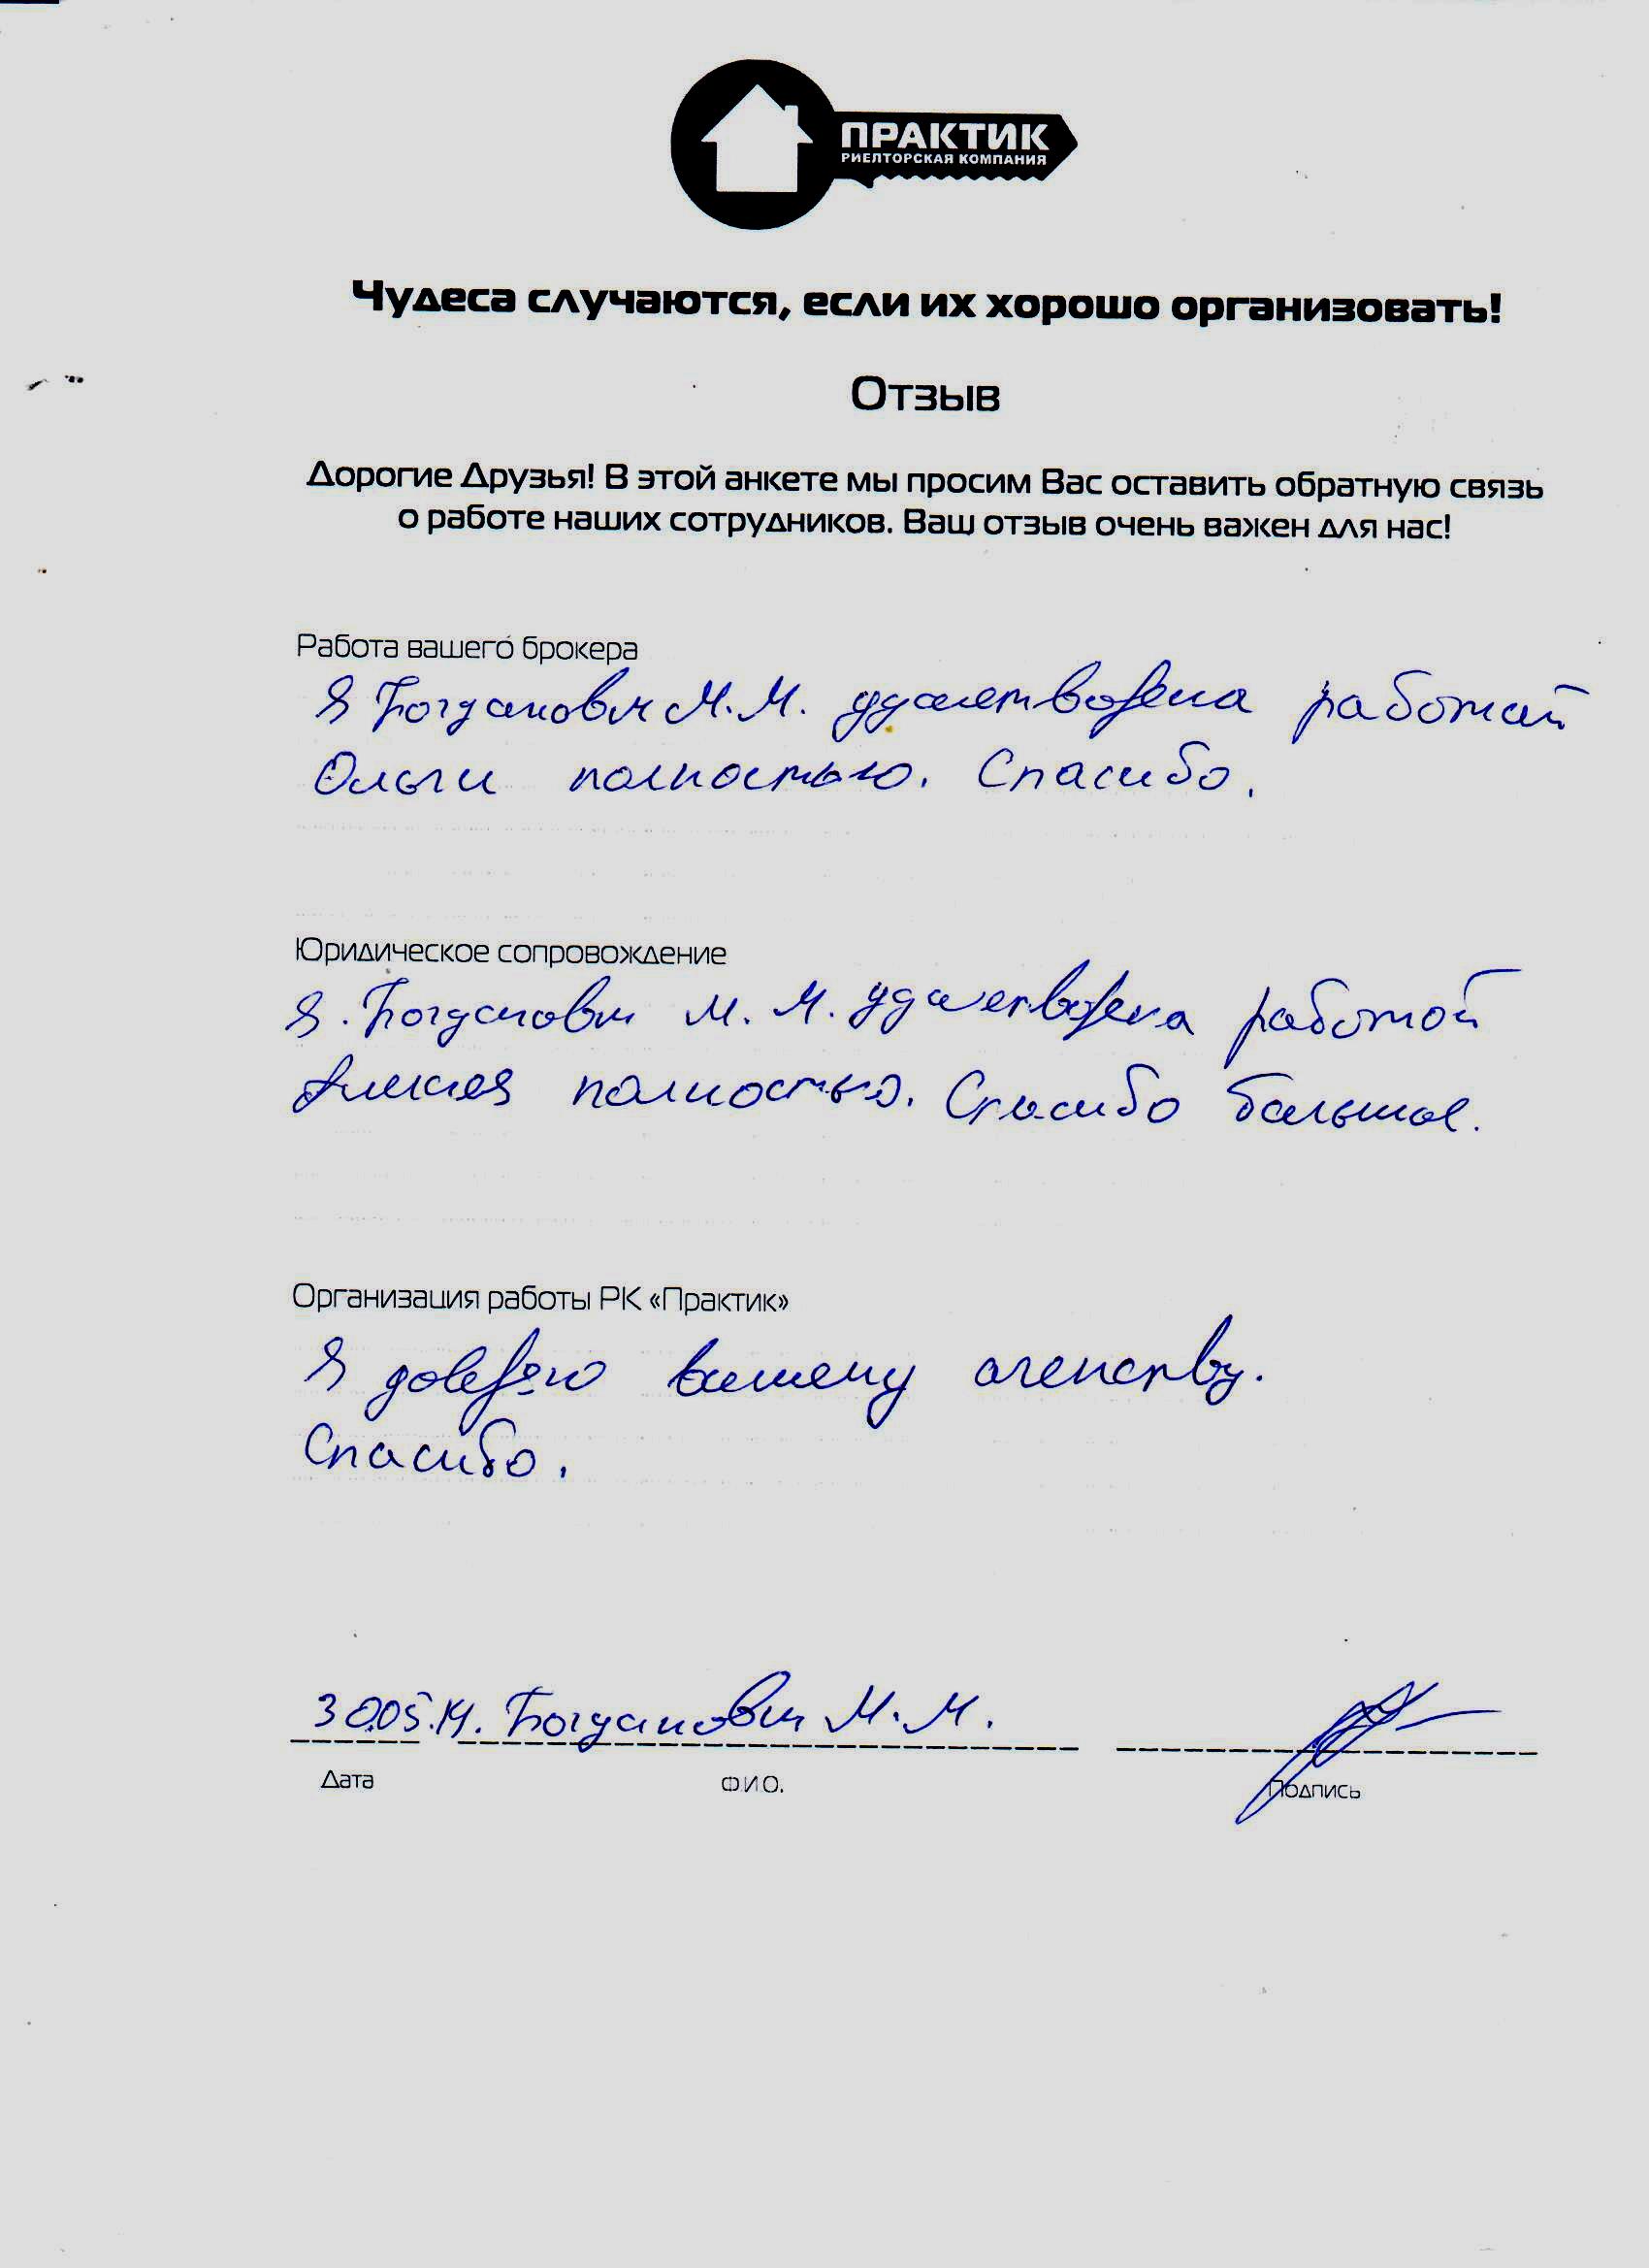 ПРАКТИК
РИЕЛТОРСКАЯ КОМПАНИЯ
Чудеса случаются, если их хорошо организовать!
Отзыв
Дорогие Друзья! В этой анкете мы просим Вас оставить обратную связь
о работе наших сотрудников. Ваш отзыв очень важен для нас!
Работа вашего брокера
Я Богданович М.М. удалетворена работай
Ольги полностью. Спасибо.
Юридическое сопровождение
Я. Богданович М. М. удалетворена работой
полностью. Спасибо большое.
Организация работы РК «Практик»
Я доверяю вашему агенству.
Спасибо.
30.05.14. Богданович М.М.
Дата ФИО. Подпись